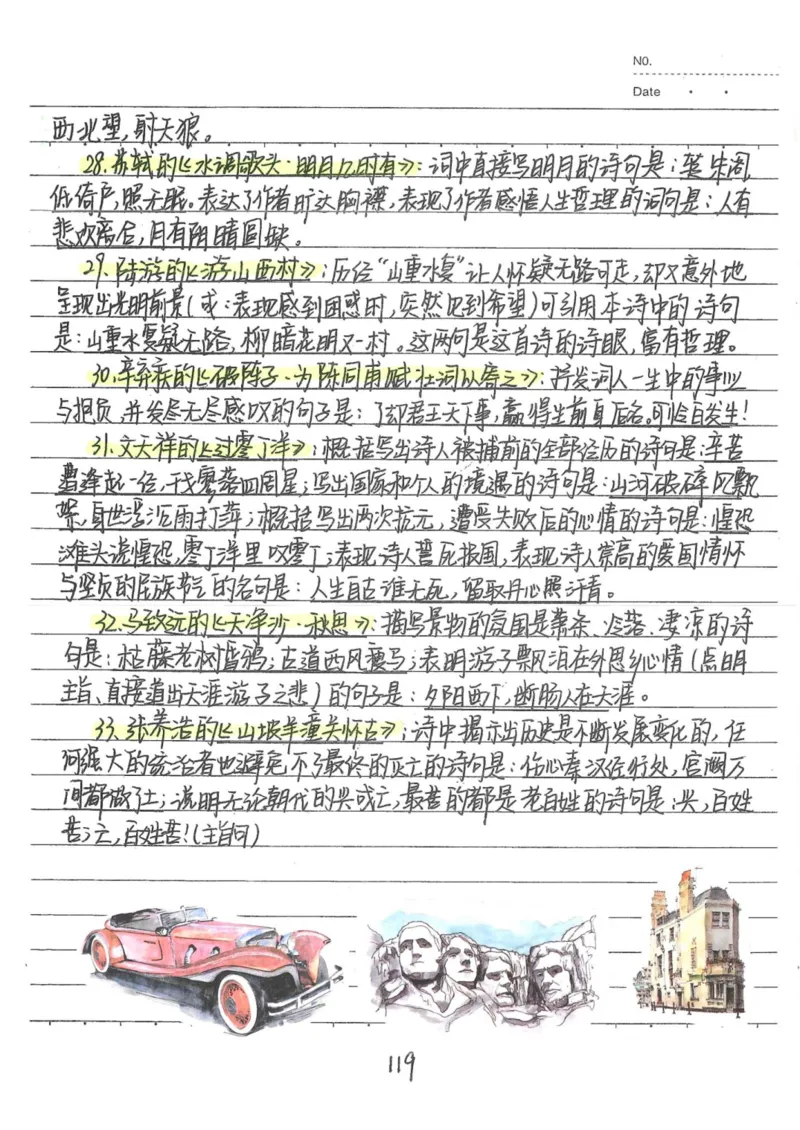 No.
Date
西北望,射天狼。
28.苏轼的《水调歌头·明月几时有》:词中直接写明月的诗句是:转朱阁
低倚户,照无眠。表达了作者旷达胸襟,表现了作者感悟人生哲理的词句是:人有
悲欢离合,月有阴晴圆缺。
29.陆游的《游山西村》:历经“山重水复”让人怀疑无路可走,却又意外地
呈现出光明前景(或:表现感到困惑时,突然见到希望)可引用本诗中的诗句
是:山重水复疑无路,柳暗花明又一村。这两句是这首诗的诗眼,富有哲理。
30.辛弃疾的《破阵子·为陈同甫赋壮词以寄之》:抒发词人一生中的事业
与抱负,并发尽无尽感叹的句子是:了却君王天下事,赢得生前身后名。可怜白发生!
31.文天祥的《过零丁洋》:概括写出诗人被捕前的全部经历的诗句是:辛苦
遭逢起一经,干戈寥落四周星;写出国家和个人的境遇的诗句是:山河破碎风飘
絮,身世浮沉雨打萍;概括写出两次抗元,遭受失败后的心情的诗句是:惶恐
滩头说惶恐,零丁洋里叹零丁;表现诗人誓死报国,表现诗人崇高的爱国情怀
与坚贞的民族节气的名句是:人生自古谁无死,留取丹心照汗青。
32.马致远的《天净沙·秋思》:描写景物的氛围是萧杀、冷落、凄凉的诗
句是:枯藤老树昏鸦;古道西风瘦马;表明游子飘泊在外思乡心情(点明
主旨、直接道出天涯游子之悲)的句子是:夕阳西下,断肠人在天涯。
33.张养浩的《山坡羊·潼关怀古》:诗中揭示出历史是不断发展变化的,任
何强大的统治者也避免不了最终的灭亡的诗句是:伤心秦汉经行处,宫阙万
间都做了土;说明无论朝代的兴或亡,最苦的都是老百姓的诗句是:兴,百姓
苦;亡,百姓苦!(主旨句)
119